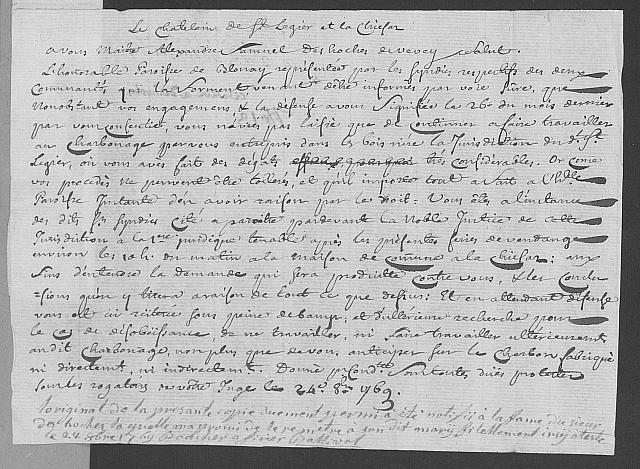 Le Chatelain de St Legier et la Chiesaz
a vous Maitre Alexandre Samuel deshoches de vevey salut.
L'honorable Paroisse de Blonay representée par les Syndics respectifs des deux
Communes qui la forment venant d'être informés par voie sure, que
Nonobstant vos engagemens & la defense a vous Signifiée la 26e du mois dernier
par vous consentie, vous n'avés pas laissé que de continuer a faire travailler
au Charbonage par vous entrepris dans les bois riere la Jurisdiction du dt St
Legier, où vous avés fait des degats très considerables. Or come
vos procedés ne peuvent être tollerés, et qu'il importe tout a fait a l'hble
Paroisse Instante d'en avoir raison par le droit: Vous êtes a l'instance
des dits Srs Syndics Cité a paroitre pardevant la Noble Justice de cette
Jurisdiction a la 1ere juridique tenable après les présentes feries de vendange
environ les 10 h. du matin a la maison de Comune a la Chiesaz: aux
fins d'entendre la demande qui sera produitte contre vous, & les Conclu
=sions quon y litera a raison de tout ce que dessus: Et en attendant défense
vous est ici réiterée sous peine de bamp, et d'ulterieure recherche pour
le cas de désobeissance, de ne travailler, ni faire travailler ulterieurement
audit Charbonage, non plus que de vous anticiper sur le Charbon fabriqué
ni directemt, ni indirectemt. Donné sous toutes dues protestes
sous les rogatoires de votre Juge le 24e 8bre 1769.
l'original de la presante copie duement permis a été notifié à la fame du sieur
des hoches laquelle ma promi de le remetre a son dit mary fidellement insy atesté
le 24 8bre 1769